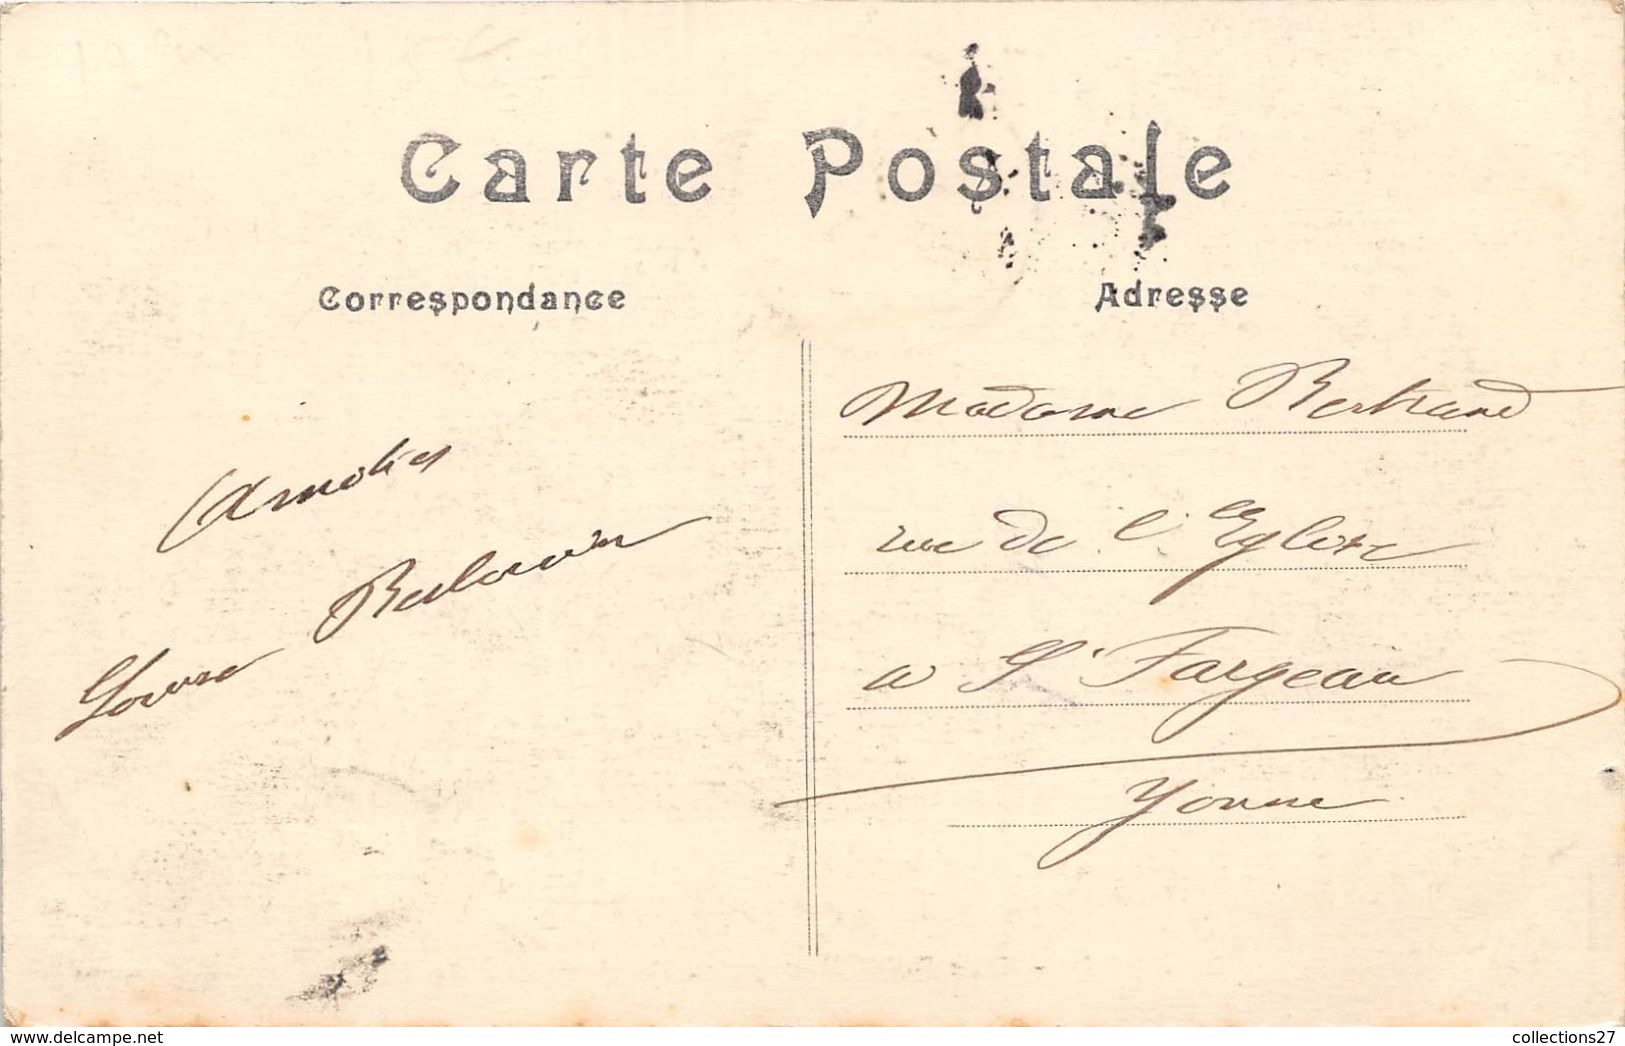 Carte Postale
Correspondance
Adresse
Amitiés
Louise
Madame Bertrand
rue de l'Eglise
a St Fargeau
Yonne
www.delcampe.net
collections27